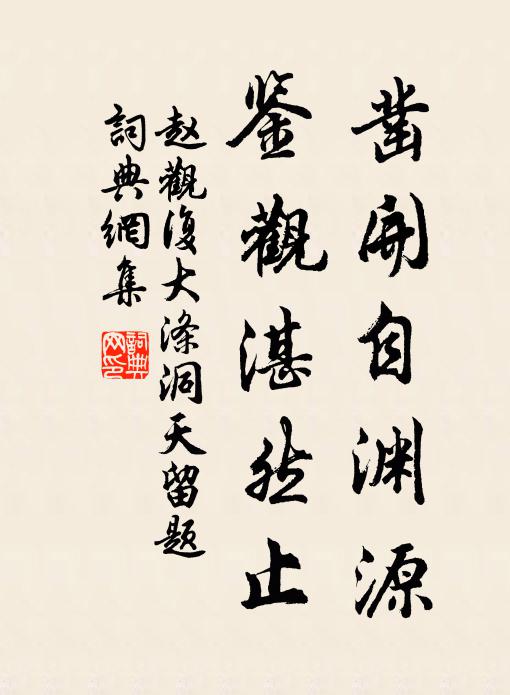 凿开自渊源
鉴观湛然止
赵观复大涤洞天留题
词典网集
词典网印